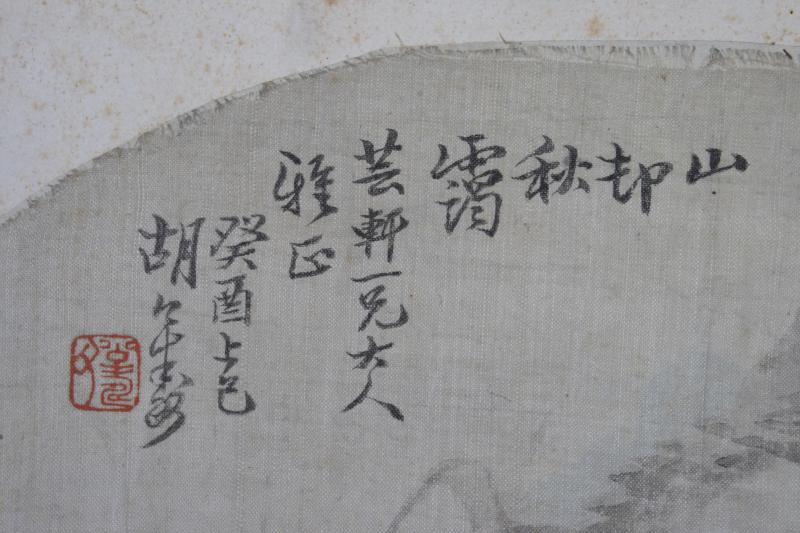 山邨秋靄
芸軒一兄大人
雅正
癸酉上巳
胡